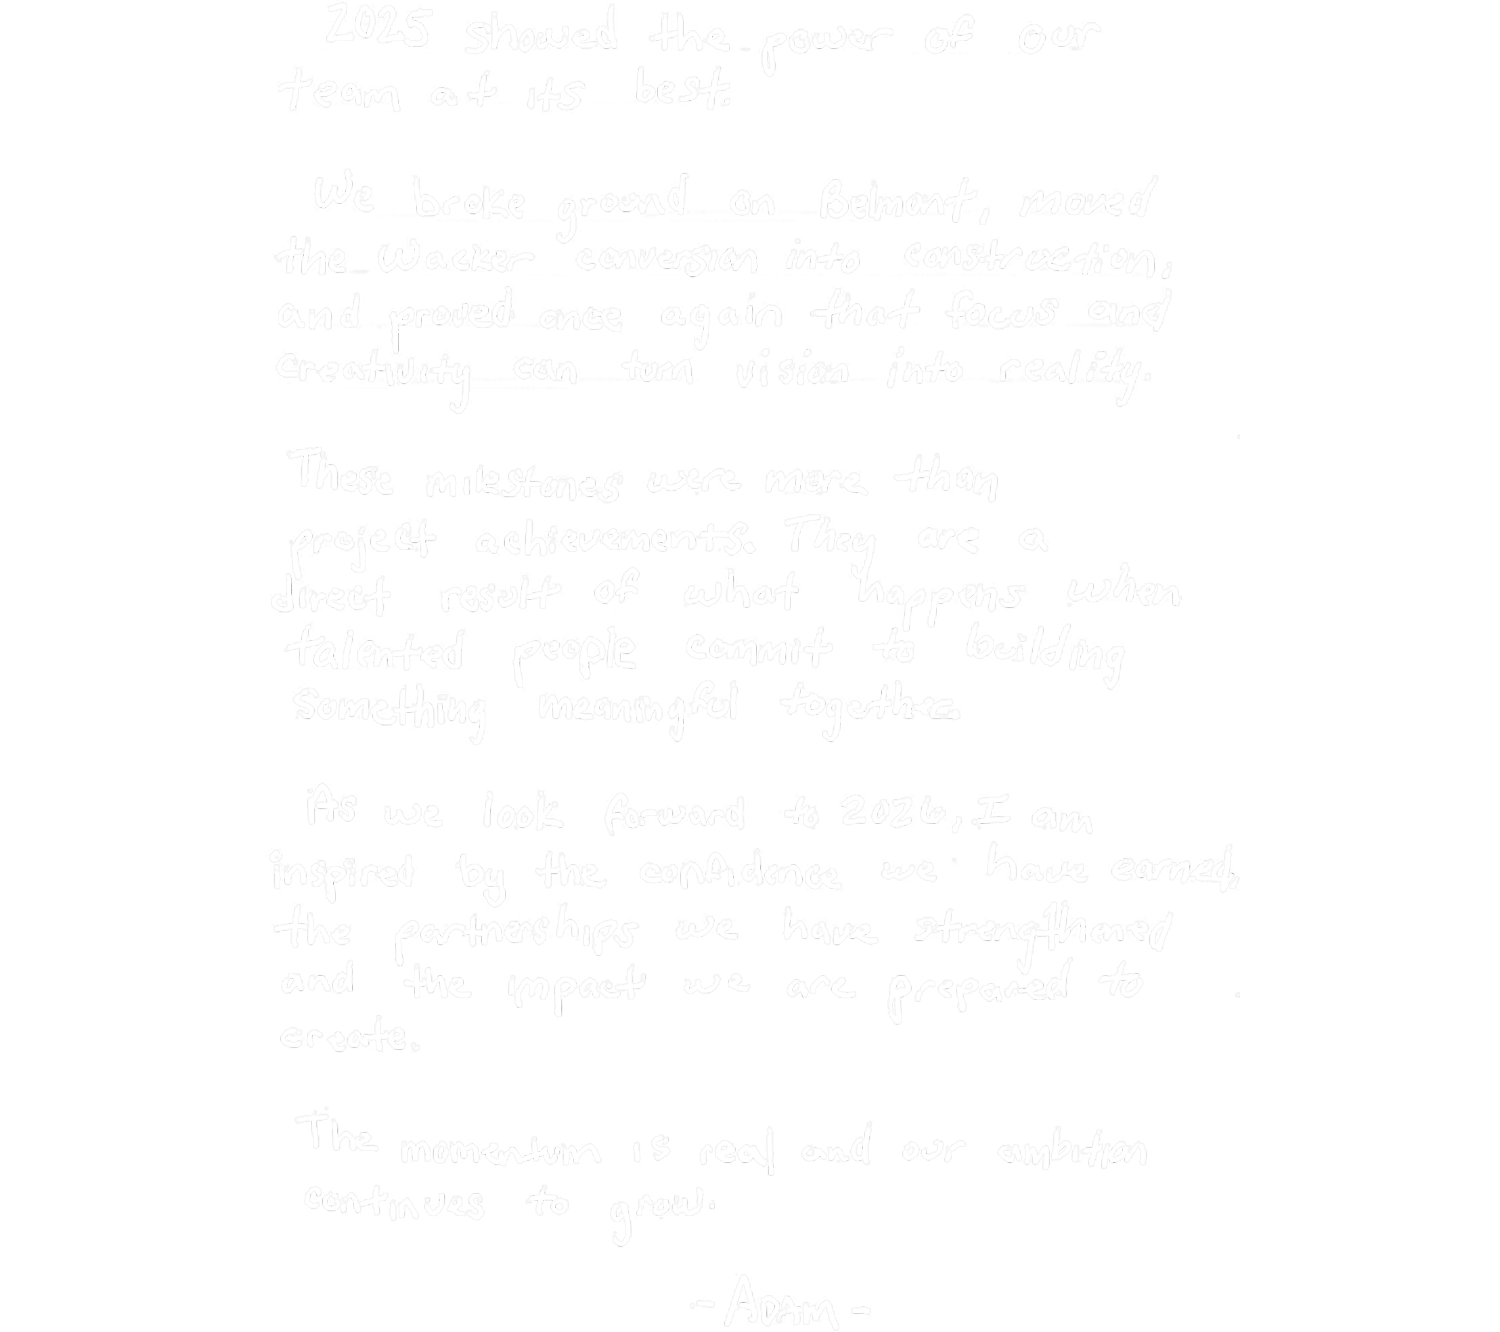 2025 showed the power of our
team at its best.
We broke ground on Belmont, moved
the Wacker conversion into construction,
and proved once again that focus and
creativity can turn vision into reality.
These milestones were more than
project achievements. They are a
direct result of what happens when
talented people commit to building
something meaningful together.
As we look forward to 2026, I am
inspired by the confidence we have earned,
the partnerships we have strengthened
and the impact we are prepared to
create.
The momentum is real and our ambition
continues to grow.
- ADAM -